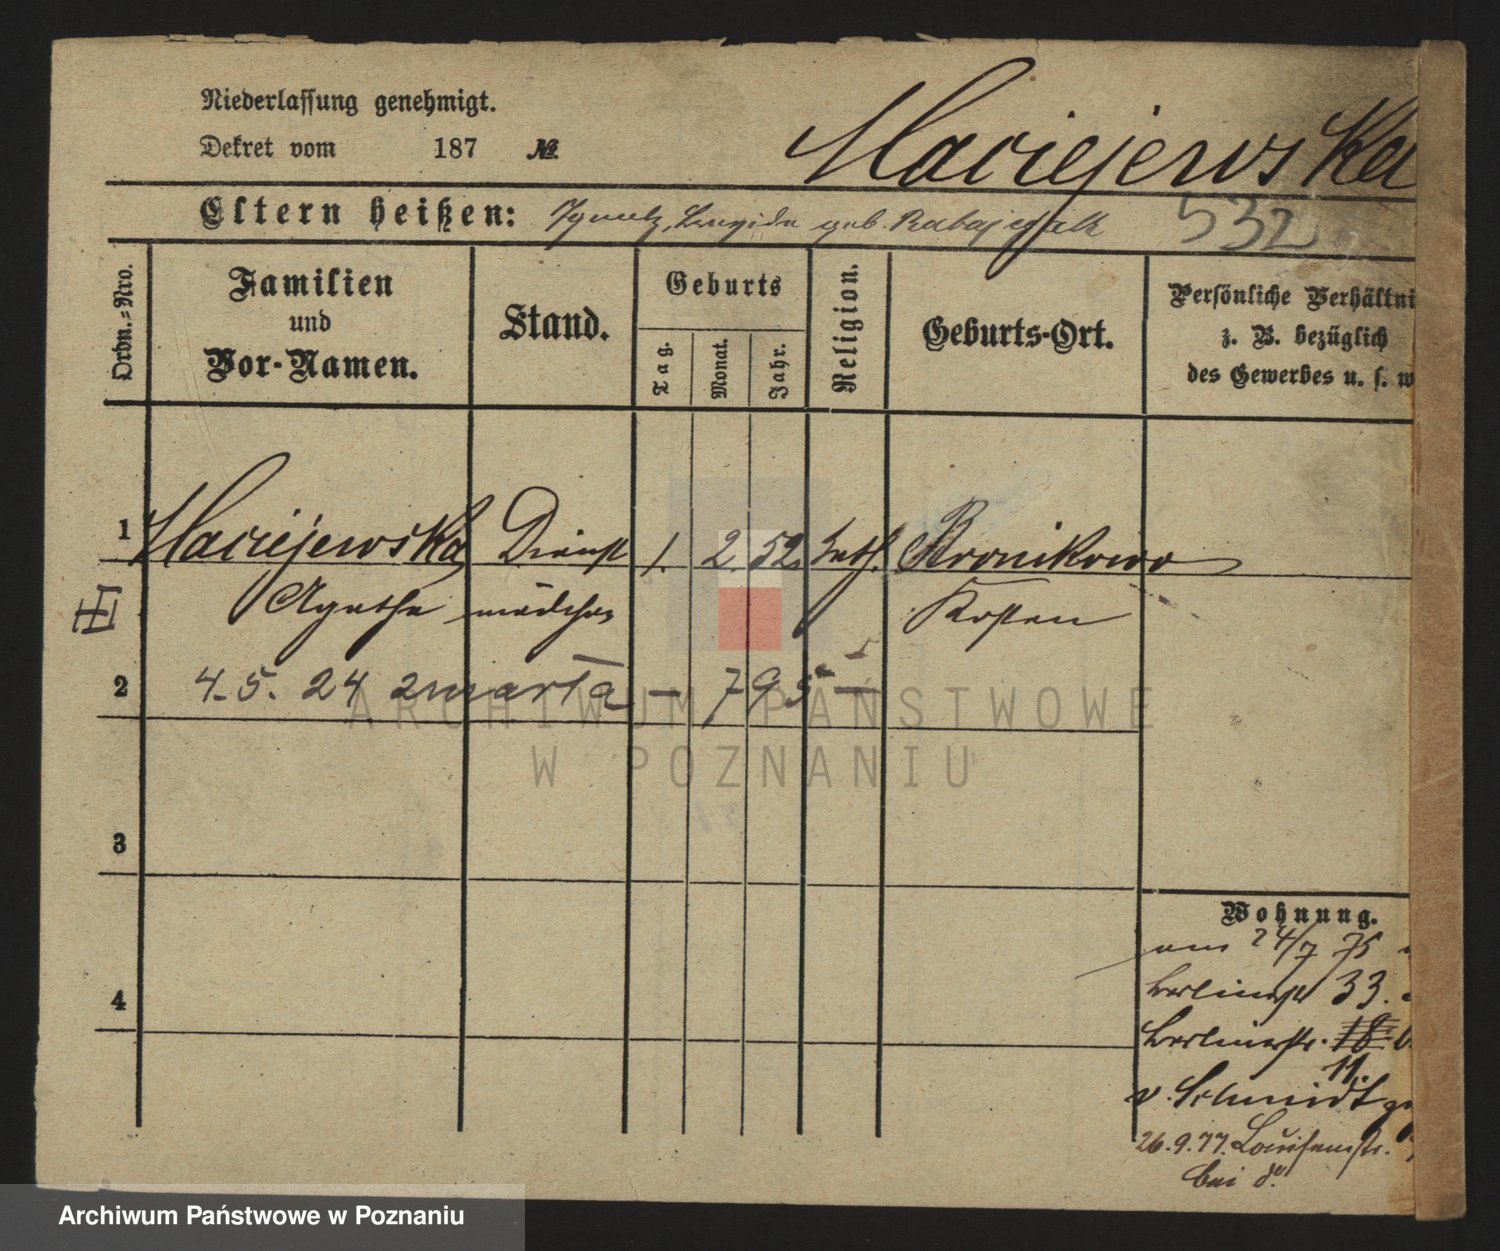 Niederlassung genehmigt.
Dekret vom 187 №
Maciejewska
Eltern heißen: Ignatz, geb. Ratajczak
532
Ordn.-Nro.
Familien
und
Vor-Namen.
Stand.
Geburts
Tag.
Monat.
Jahr.
Religion.
Geburts-Ort.
Persönliche Verhältni
z. B. bezüglich
des Gewerbes u. s. w
1 Maciejewska Dienst 1. 2. 52. kath. Bronikowo
Agathe mädchen Kosten
2 4. 5. 24 zmarła - 795 -
3
4
Wohnung.
am 24/7 75
Berlinerstr 33.
Berlinerstr. 18
11.
v. Schmidt
26. 9. 77. Louisenstr.
bei d.
ARCHIWUM PAŃSTWOWE
W POZNANIU
Archiwum Państwowe w Poznaniu